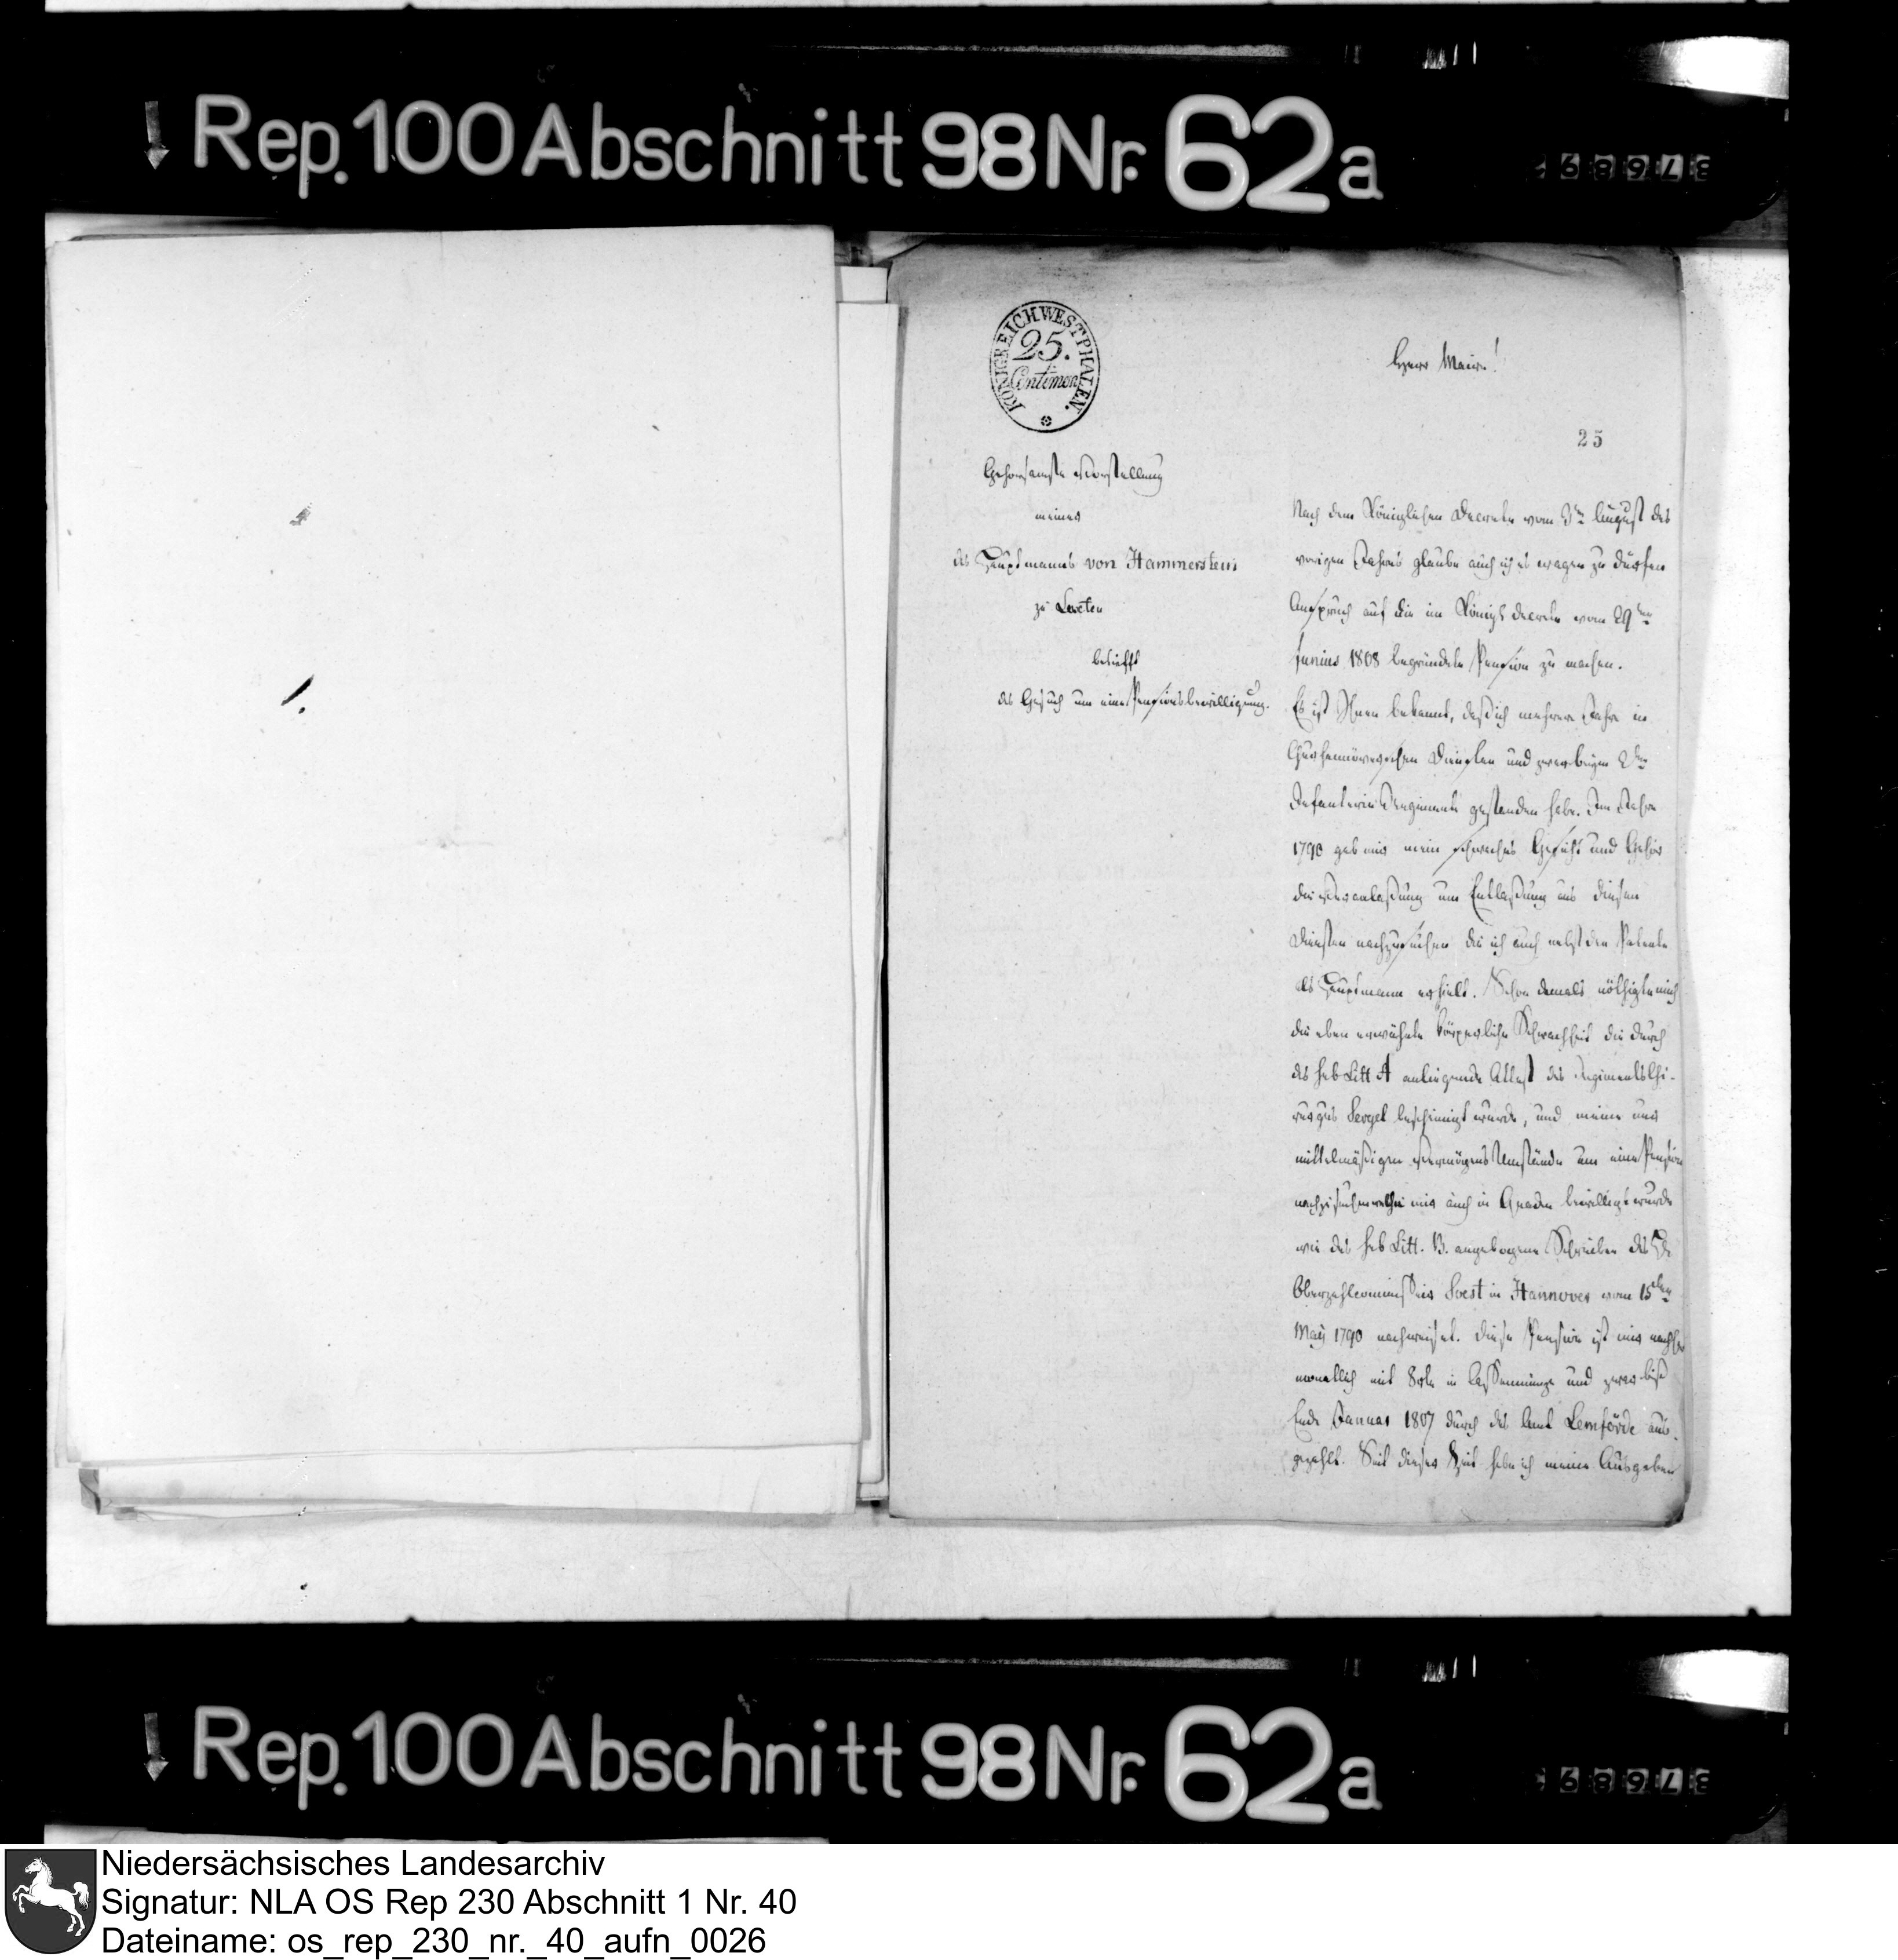 Rep. 100 Abschnitt 98 Nr. 62a
37689
KÖNIGREICH WESTPHALEN.
25.
Centimen
Herr Maire!
25
Gehorsamste Vorstellung
meiner
des Hauptmanns von Hammerstein
zu
betrifft
das Gesuch um eine Pensionsbewilligung.
Nach dem Königlichen Decrete vom 3ten August des
vorigen Jahres glaube auch ich es wagen zu dürfen
Anspruch auf die im Königl. Decrete vom 29ten
Junius 1808 begründete Pension zu machen.
Es ist Ihnen bekannt, daß ich mehrere Jahre in
Churhannöverschen Diensten und zwar beym 2ten
Infanterie Regimente gestanden habe. Im Jahre
1790 gab mir mein schwaches Gesicht und Gehör
die Veranlaßung um Entlaßung aus diesen
Diensten nachzusuchen die ich auch nebst dem Patente
als Hauptmann erhielt. Schon damals nöthigte mich
die eben erwähnte körperliche Schwachheit die durch
das sub Litt A anliegende Attest des Regiments Chi-
rurgus bescheinigt wurde, und meine nur
mittelmäßigen Vermögens Umstände um eine Pension
nachzusuchen welche mir auch in Gnaden bewilligt wurde
wie das sub Litt. B. angebogene Schreiben des
Oberzahlcommissair in Hannover vom 15ten
May 1790 nachweiset. Diese Pension ist mir nachher
monatlich mit 8 rtlr in Cassenmünze und zwar bis
Ende Januar 1807 durch das Amt Lemförde aus-
gezahlt. Seit dieser Zeit habe ich meine Ausgaben
Rep. 100 Abschnitt 98 Nr. 62a
37689
Niedersächsisches Landesarchiv
Signatur: NLA OS Rep 230 Abschnitt 1 Nr. 40
Dateiname: os_rep_230_nr._40_aufn_0026